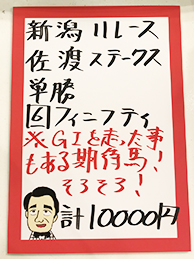 新潟11レース
佐渡ステークス
単勝
⑥フィニフティ
※GIを走った事!
もある期待馬!
そろそろ!
計10000円